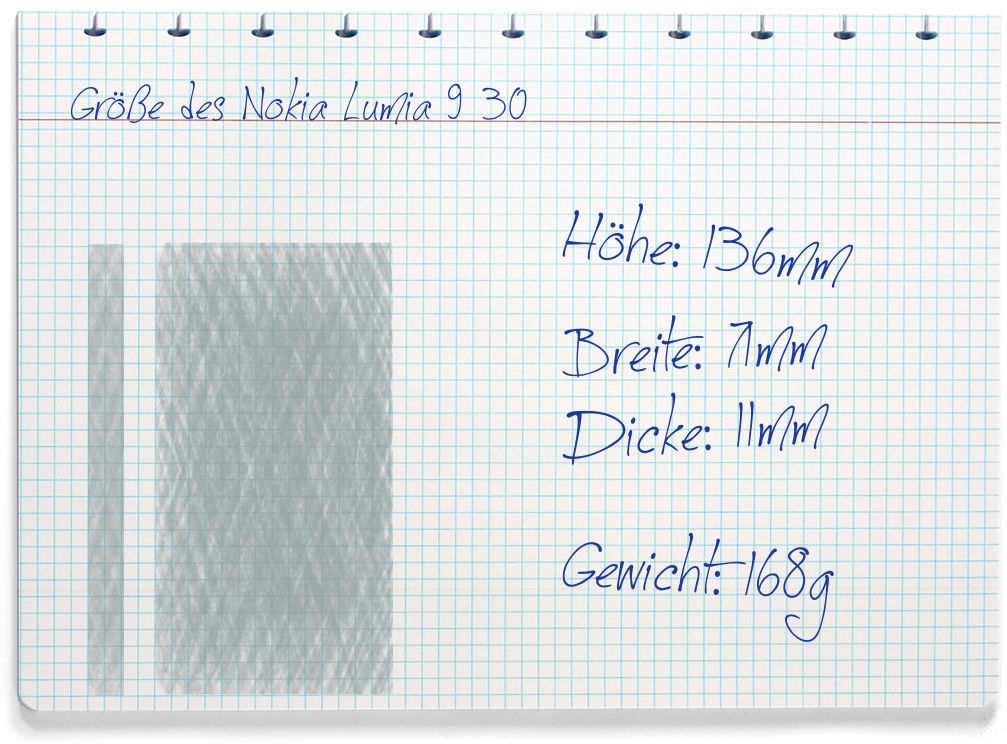 Größe des Nokia Lumia 9 30
Höhe: 136mm
Breite: 71mm
Dicke: 11mm
Gewicht: 168g